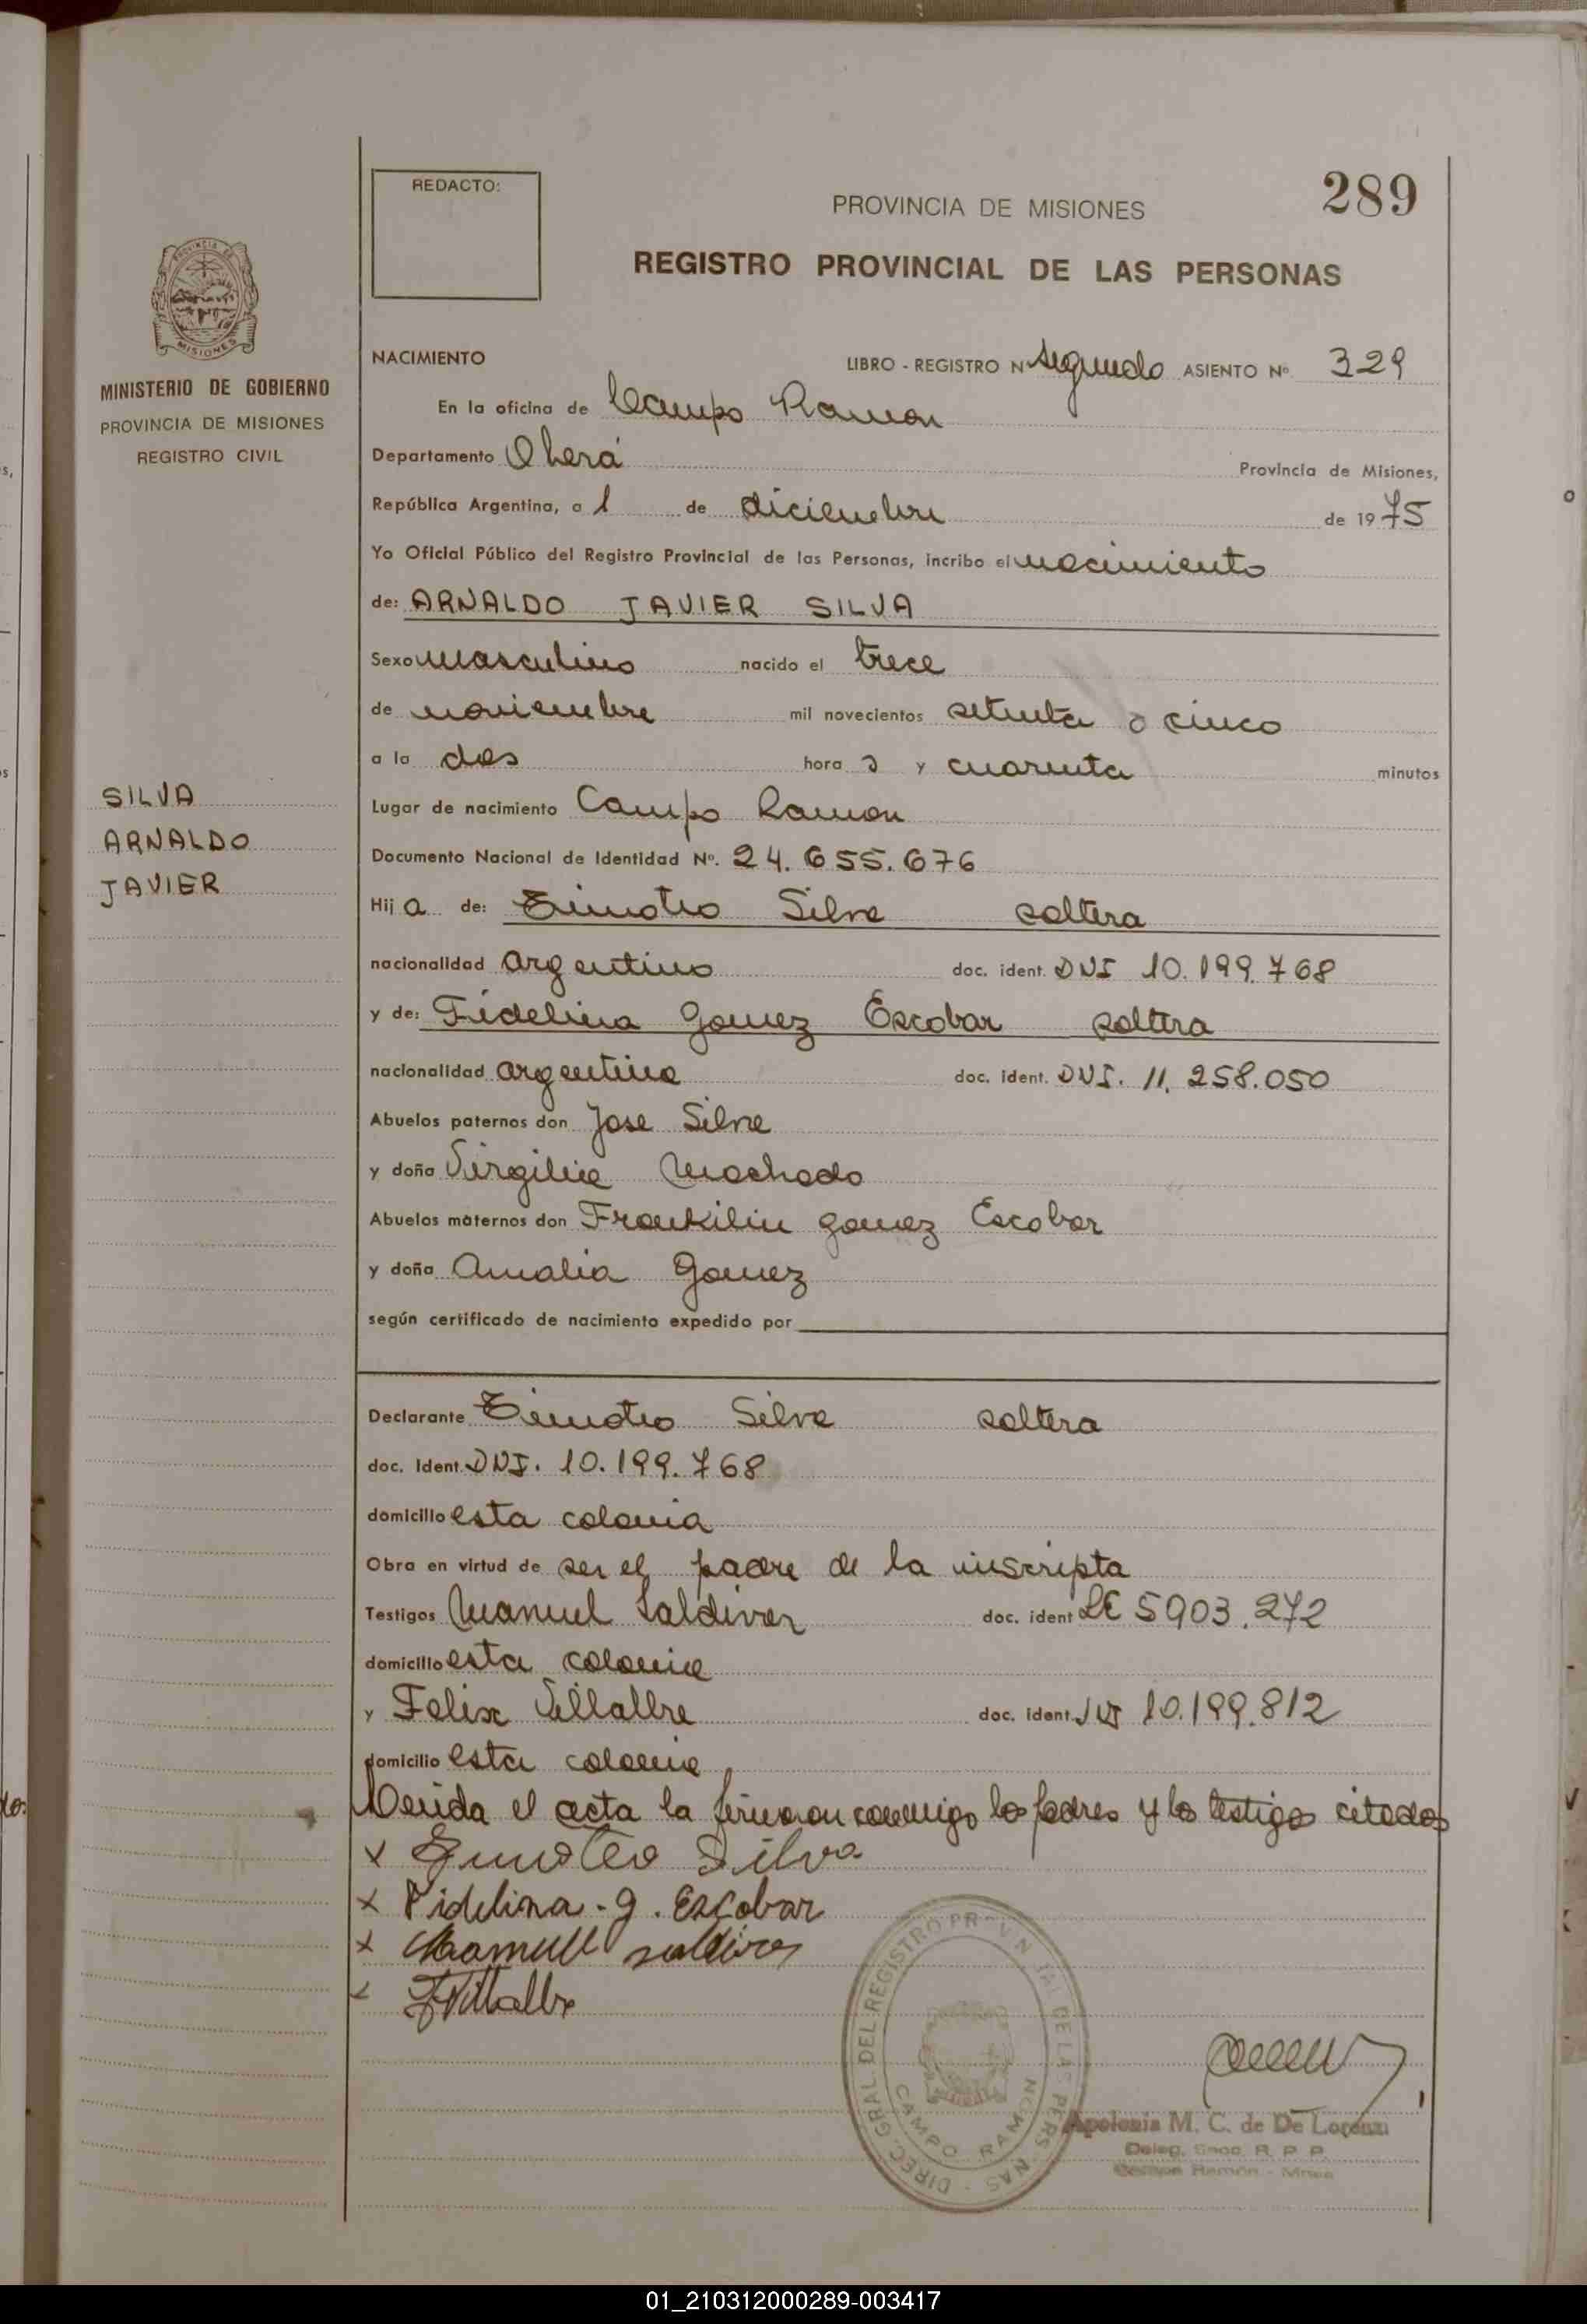 289
REDACTO:
PROVINCIA DE MISIONES
REGISTRO PROVINCIAL DE LAS PERSONAS
PROVINCIA DE
MISIONES
MINISTERIO DE GOBIERNO
PROVINCIA DE MISIONES
REGISTRO CIVIL
NACIMIENTO LIBRO - REGISTRO Nº segundo ASIENTO Nº 329
En la oficina de Campo Ramon
Departamento Oberá Provincia de Misiones,
República Argentina, a 1 de diciembre de 1975
Yo Oficial Público del Registro Provincial de las Personas, incribo el nacimiento
de: ARNALDO JAVIER SILVA
Sexo masculino nacido el trece
de noviembre mil novecientos setenta y cinco
a la dos hora s y cuarenta minutos
SILVA
ARNALDO
JAVIER
Lugar de nacimiento Campo Ramon
Documento Nacional de Identidad Nº. 24.655.676
Hij a de: Timoteo Silva soltera
nacionalidad argentino doc. ident. DNI 10.199.768
y de: Fidelina Gomez Escobar soltera
nacionalidad argentina doc. ident. DNI. 11.258.050
Abuelos paternos don Jose Silva
y doña Virgilia Machado
Abuelos maternos don Frankilin Gomez Escobar
y doña Amalia Gomez
según certificado de nacimiento expedido por
Declarante Timoteo Silva soltera
doc. Ident. DNI. 10.199.768
domicilio esta colonia
Obra en virtud de ser el padre de la inscripta
Testigos Manuel Saldivar doc. ident LE 5903.272
domicilio esta colonia
y Felix Villalba doc. ident. 10.199.812
domicilio esta colonia
el acta la firmaron conmigo los padres y los testigos citados
x Timoteo Silva
x Fidelina . g . Escobar
x Manuel saldivar
x FVillalba
DIREC. GRAL. DEL REGISTRO PROVINCIAL DE LAS PERSONAS
CAMPO RAMON
Apolonia M. C. de De Lorenzi
Deleg. Enca. R. P. P.
Campo Ramón - Mnes
01_210312000289-003417